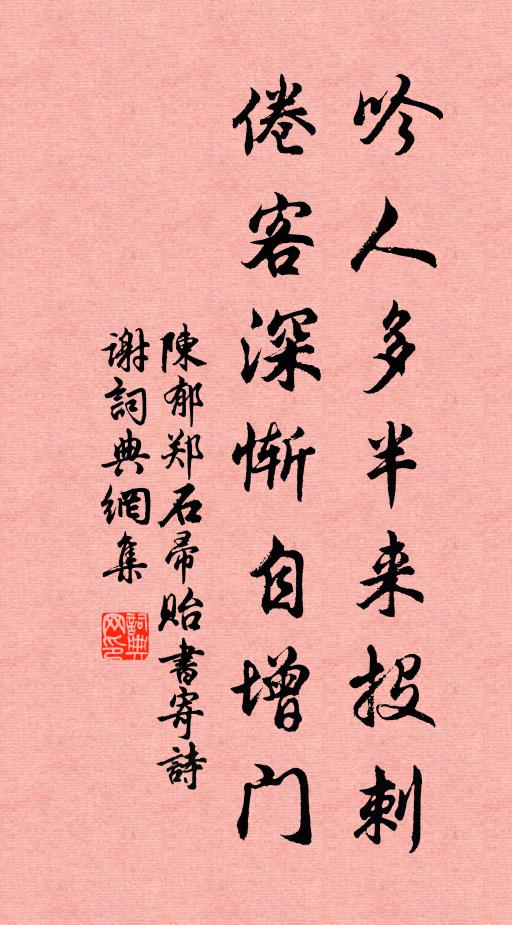 吟人多半来投刺
倦客深惭自增门
陳郁郑石帚贻書寄詩
谢詞典網集
詞典网印